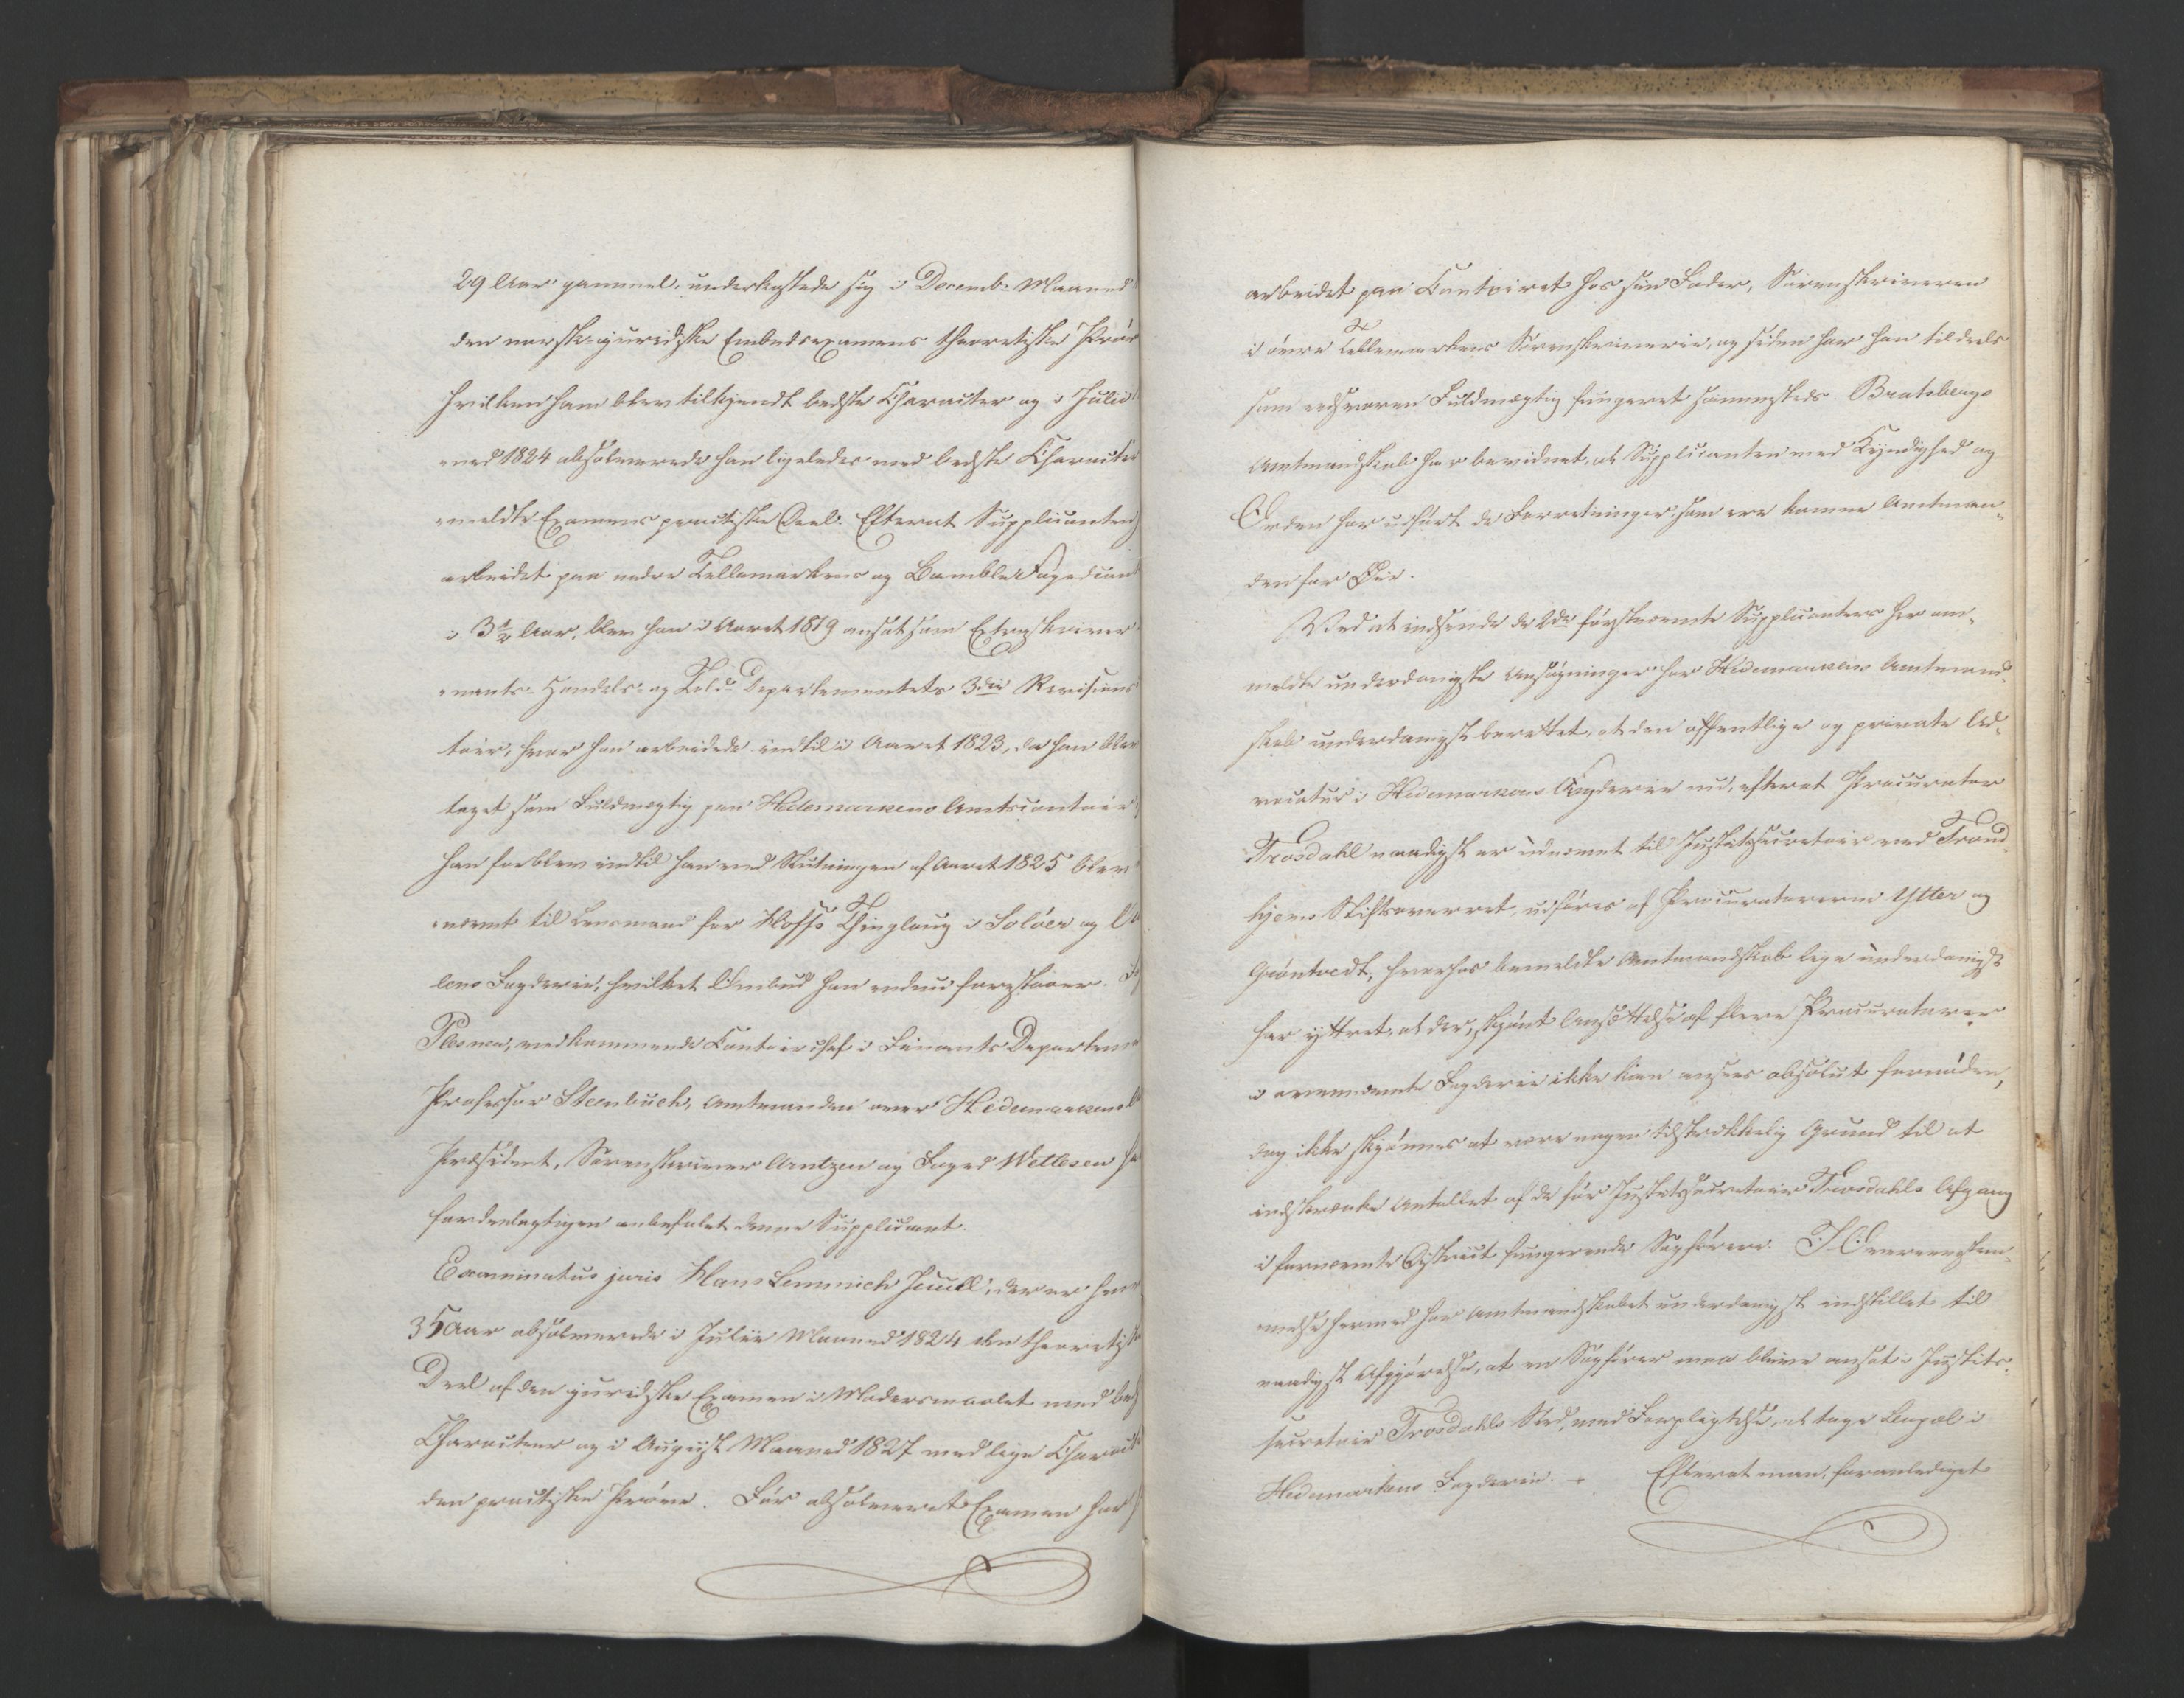 29 Aar gammel, underkastede sig i Decemb: Maaned
den norsk-juridiske Embedsexamens theoretiske Prøv
hvilken ham blev tilkjendt bedste Character og i Julii
-ned 1824 absolverede han ligeledes med bedste Characte
-meldte Examens practiske Deel. Efterat Supplicanten
arbeidet paa nedre Tellemarkens og Bamble Fogedcont
i 3½ Aar, blev han i Aaret 1819 ansat som Extraskriver
-nants- Handels- og Told-Departementets 3die Revisions
toir, hvor han arbeidede indtil i Aaret 1823, da han blev
taget som Fuldmægtig paa Hedemarkens Amtscontoir
han forblev indtil han ved Slutningen af Aaret 1825 blev
-nævnt til Lensmand for Hoffs Thinglaug i Soløer og
lens Fogderie, hvilket Ombud han endnu forestaaer.
Plesner, vedkommende Contoirchef i Finants Departem
Professor Steenbuch, Amtmanden over Hedemarkens
Præsident, Sorenskriver Arntzen og Foged Wetlesen ha
fordeelagtigen anbefalet denne Supplicant.
Examinatus juris Hans Lemmich Juell, der er hen
35 Aar absolverede i Julii Maaned 1824 den theoretiske
Deel af den juridiske Examen i Modersmaalet med bed
Character og i August Maaned 1827 med lige Charact
den practiske Prøve. Før absolveret Examen har
arbeidet paa Contoiret hos sin Fader, Sorenskriveren
i øvre Tellemarkens Sorenskriverie, og siden har han tildeels
som edsvoren Fuldmægtig fungeret sammesteds. Bratsbergs
Amtmandskab har bevidnet, at Supplicanten med Kyndighed og
Orden har udført de Forretninger, som ere komne Amtman-
den for Øie.
Ved at indsende de 2de førstnævnte Supplicanters her om-
meldte underdanigste Ansøgninger har Hedemarkens Amtmand-
skab underdanigst berettet, at den offentlige og private Ad-
vocatur i Hedemarkens Fogderie nu, efterat Procurator
Trosdahl naadigst er udnævnt til Justitssecretair ved Trond-
hjems Stiftsoverret, udføres af Procuratorerne Ytter og
Grøntvedt, hvorhos bemeldte Amtmandskab lige underdanigst
har yttret, at der, skjønt Ansættelse af flere Procuratorer
i ovennævnte Fogderie ikke kan ansees absolut fornøden,
dog ikke skjønnes at være nogen tilstrækkelig Grund til at
indskrænke Antallet af de før Justitssecretair Trosdahls Afgang
i fornævnte District fungerende Sagførere. I Overeenstem-
melse hermed har Amtmandskabet underdanigst indstillet til
naadigst Afgjørelse, at en Sagfører maa blive ansat i Justits-
secretair Trosdahls Sted, med Forpligtelse, at tage Bopæl i
Hedemarkens Fogderie. – Efterat man, foranlediget